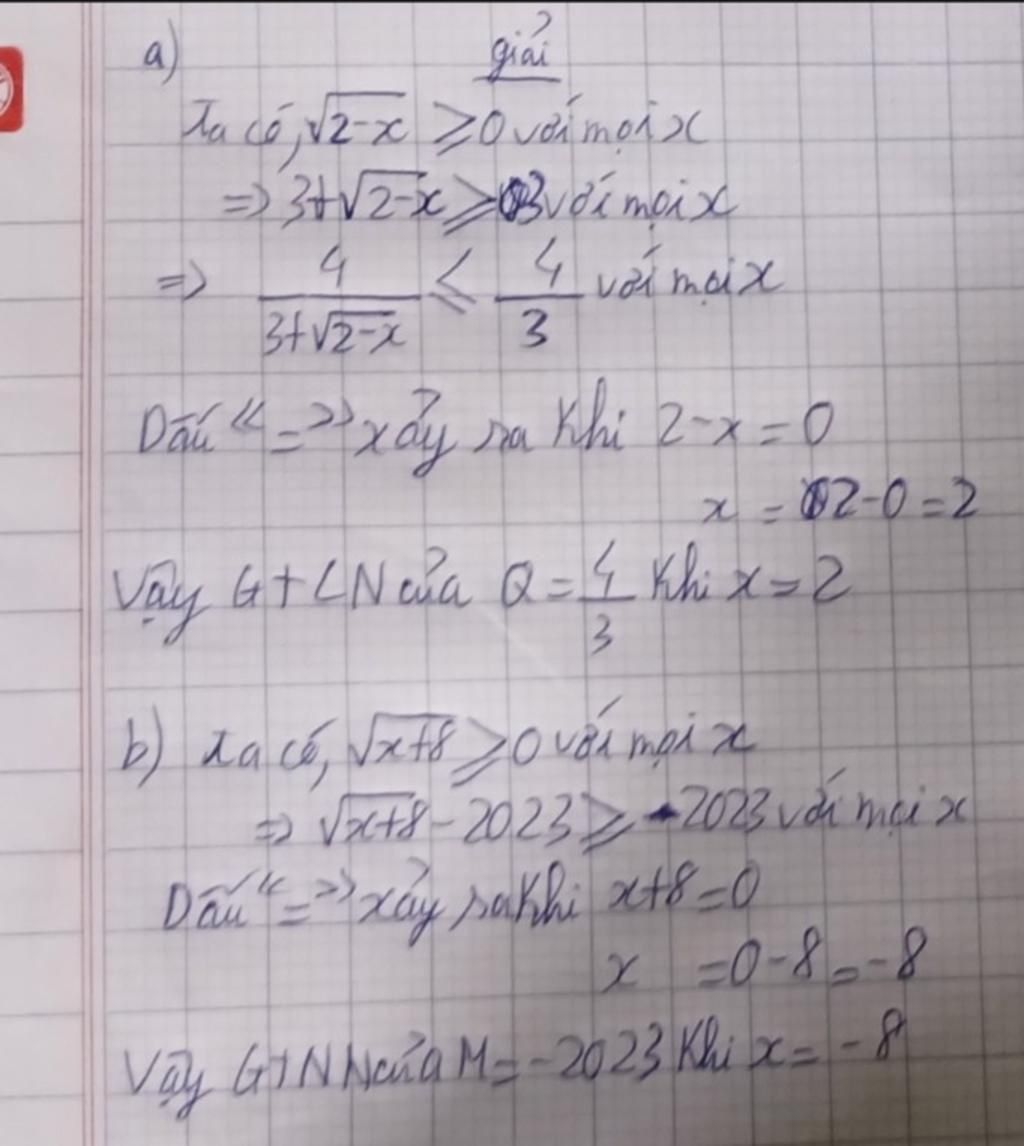 a) giải
Ta có, √2-x ⩾ 0 với mọi x
=> 3+√2-x ⩾ 3 với mọi x
=> 4/(3+√2-x) ⩽ 4/3 với mọi x
Dấu "=" xảy ra khi 2-x=0
x = 2-0=2
Vậy GTLN của Q = 4/3 khi x=2
b) Ta có, √x+8 ⩾ 0 với mọi x
=> √x+8 - 2023 ⩾ -2023 với mọi x
Dấu "=" xảy ra khi x+8=0
x =0-8=-8
Vậy GTNN của M=-2023 khi x=-8